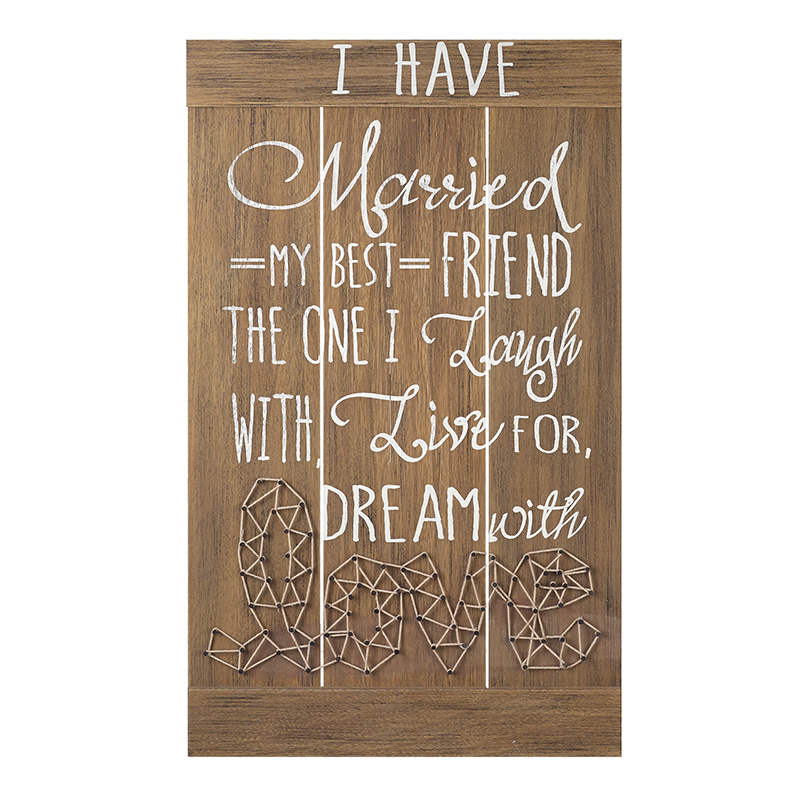 I HAVE
Married
=MY BEST= FRIEND
THE ONE I Laugh
WITH, Live FOR,
DREAM with
love